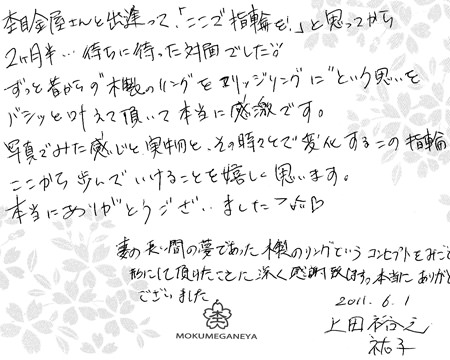 杢目金屋さんと出逢って、「ここで指輪を!」と思ってから
2ヶ月半…待ちに待った対面でした。
ずっと昔からの"木製のリングをマリッジリングに"という思いを
バシッと叶えて頂いて本当に感激です。
写真でみた感じと実物と、その時々で変化するこの指輪
ここから歩んでいけることを嬉しく思います。
本当にありがとうございましたっ♪♡
妻の長い間の夢であった木製のリングというコンセプトをみごと
形にして頂けたことに深く感謝致します。本当にありがと
ございました
2011.6.1
上田
祐子
MOKUMEGANEYA